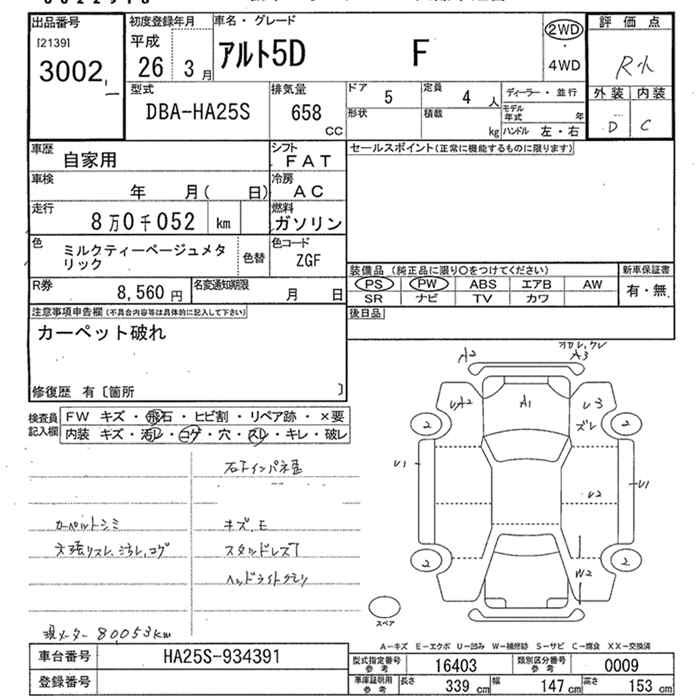 出品番号
[2139]
3002
初度登録年月
平成
26 3月
車名・グレード
アルト5D F
2WD
・
4WD
評価点
R小
外装 内装
D C
型式
DBA-HA25S
排気量
658
CC
ドア 5
定員 4 人
ディーラー・並行
形状
積載
kg
モデル年式 年
ハンドル 左・右
車歴
自家用
シフト
FAT
セールスポイント(正常に機能するものに限ります)
車検
年 月( 日)
冷房
AC
走行
8万0千052 km
燃料
ガソリン
色
ミルクティーベージュメタリック
色替
色コード
ZGF
装備品(純正品に限り○をつけてください)
新車保証書
PS PW ABS エアB AW
SR ナビ TV カワ
有・無
R券
8,560 円
名変通知期限
月 日
後日品
注意事項申告欄(不具合内容等は具体的に記入して下さい)
カーペット破れ
修復歴 有〔箇所 〕
検査員記入欄
FW キズ・飛石・ヒビ割・リペア跡・×要
内装 キズ・汚レ・コゲ・穴・スレ・キレ・破レ
カーペットシミ
キズ,E
スタッドレス7
ヘッドライトクモリ
現メーター 80053km
A2
A3
UA2
A1
U3
ズレ
2
2
U1
U2
U1
2
2
W2
スペア
A-キズ E-エクボ U-凹み W-補修跡 S-サビ C-腐食 XX-交換済
車台番号
HA25S-934391
登録番号
型式指定番号参考 16403
類別区分番号参考 0009
車庫証明用参考
長さ 339 cm 幅 147 cm 高さ 153 cm